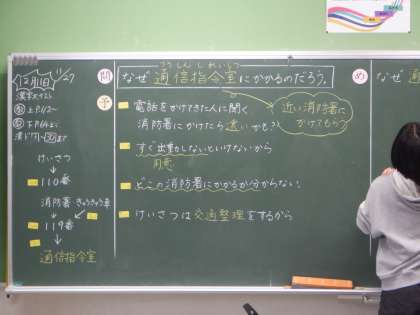 問
つうしんしれいしつ
なぜ通信指令室にかかるのだろう。
予
電話をかけてきた人に聞く
消防署にかけたら遠いかも?
近い消防署に
かけてもらう
すぐ出動しないといけないから
用意
どこの消防署にかかるか分からない。
けいさつは交通整理をするから
けいさつ
110番
消防署・きゅうきゅう車
119番
通信指令室
め
なぜ通